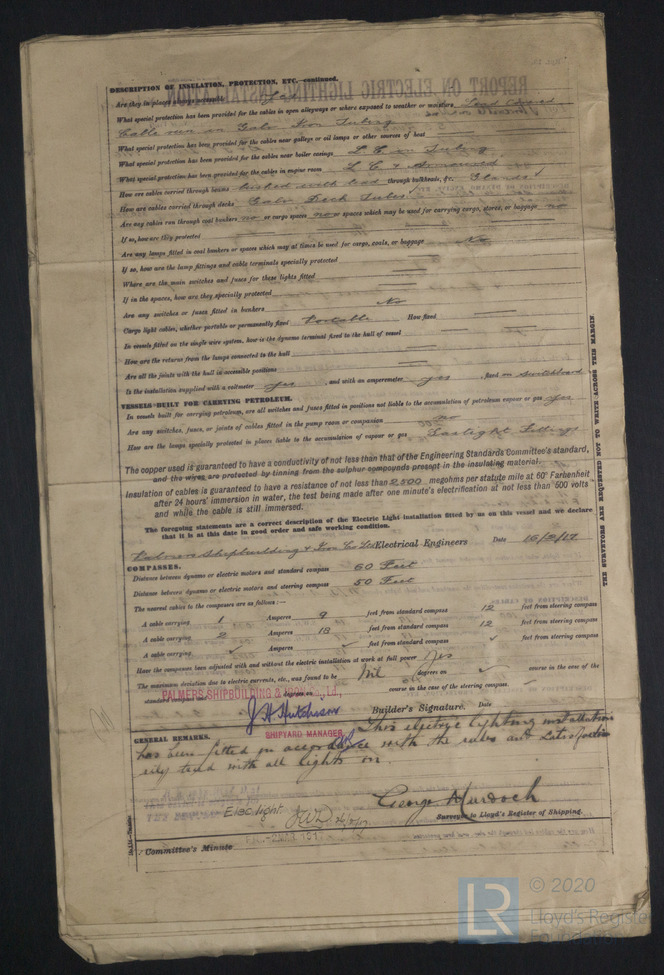 DESCRIPTION OF INSULATION, PROTECTION, ETC.—continued.
Are they in places always accessible yes
What special protection has been provided for the cables in open alleyways or where exposed to weather or moisture Lead Covered
Cable run in Galv Iron Tubing
What special protection has been provided for the cables near galleys or oil lamps or other sources of heat
What special protection has been provided for the cables near boiler casings L C in Tubing
What special protection has been provided for the cables in engine room L C & Armoured
How are cables carried through beams bushed with lead through bulkheads, &c. Glands
How are cables carried through decks Galv Deck Tubes
Are any cables run through coal bunkers no or cargo spaces no or spaces which may be used for carrying cargo, stores, or baggage no
If so, how are they protected
Are any lamps fitted in coal bunkers or spaces which may at times be used for cargo, coals, or baggage No
If so, how are the lamp fittings and cable terminals specially protected
Where are the main switches and fuses for these lights fitted
If in the spaces, how are they specially protected
Are any switches or fuses fitted in bunkers No
Cargo light cables, whether portable or permanently fixed Portable How fixed
In vessels fitted on the single wire system, how is the dynamo terminal fixed to the hull of vessel
How are the returns from the lamps connected to the hull
Are all the joints with the hull in accessible positions
Is the installation supplied with a voltmeter yes, and with an amperemeter yes, fixed on Switchboard
VESSELS BUILT FOR CARRYING PETROLEUM.
In vessels built for carrying petroleum, are all switches and fuses fitted in positions not liable to the accumulation of petroleum vapour or gas yes
Are any switches, fuses, or joints of cables fitted in the pump room or companion no
How are the lamps specially protected in places liable to the accumulation of vapour or gas Gastight Fittings
The copper used is guaranteed to have a conductivity of not less than that of the Engineering Standards Committee's standard,
and the wires are protected by tinning from the sulphur compounds present in the insulating material.
Insulation of cables is guaranteed to have a resistance of not less than 2,500 megohms per statute mile at 60° Farhenheit
after 24 hours' immersion in water, the test being made after one minute's electrification at not less than 500 volts
and while the cable is still immersed.
The foregoing statements are a correct description of the Electric Light installation fitted by us on this vessel and we declare
that it is at this date in good order and safe working condition.
Palmers Shipbuilding & Iron Co Ld Electrical Engineers Date 15/2/17
COMPASSES.
Distance between dynamo or electric motors and standard compass 60 Feet
Distance between dynamo or electric motors and steering compass 50 Feet
The nearest cables to the compasses are as follows:—
A cable carrying 1 Amperes 9 feet from standard compass 12 feet from steering compass
A cable carrying 2 Amperes 18 feet from standard compass 12 feet from steering compass
A cable carrying Amperes feet from standard compass feet from steering compass
Have the compasses been adjusted with and without the electric installation at work at full power Yes
The maximum deviation due to electric currents, etc., was found to be Nil degrees on course in the case of the
standard compass and degrees on course in the case of the steering compass.
PALMERS SHIPBUILDING & IRON Co., Ld.,
J H Hutchison Builder's Signature. Date
SHIPYARD MANAGER
GENERAL REMARKS. This electric lighting installation
has been fitted in accordance with the rules and satisfactor
ily tried with all lights on.
George Murdoch
Surveyor to Lloyd's Register of Shipping.
Elec light. JWD
Committee's Minute
THE SURVEYORS ARE REQUESTED NOT TO WRITE ACROSS THIS MARGIN
LR © 2020
Lloyd's Register
Foundation